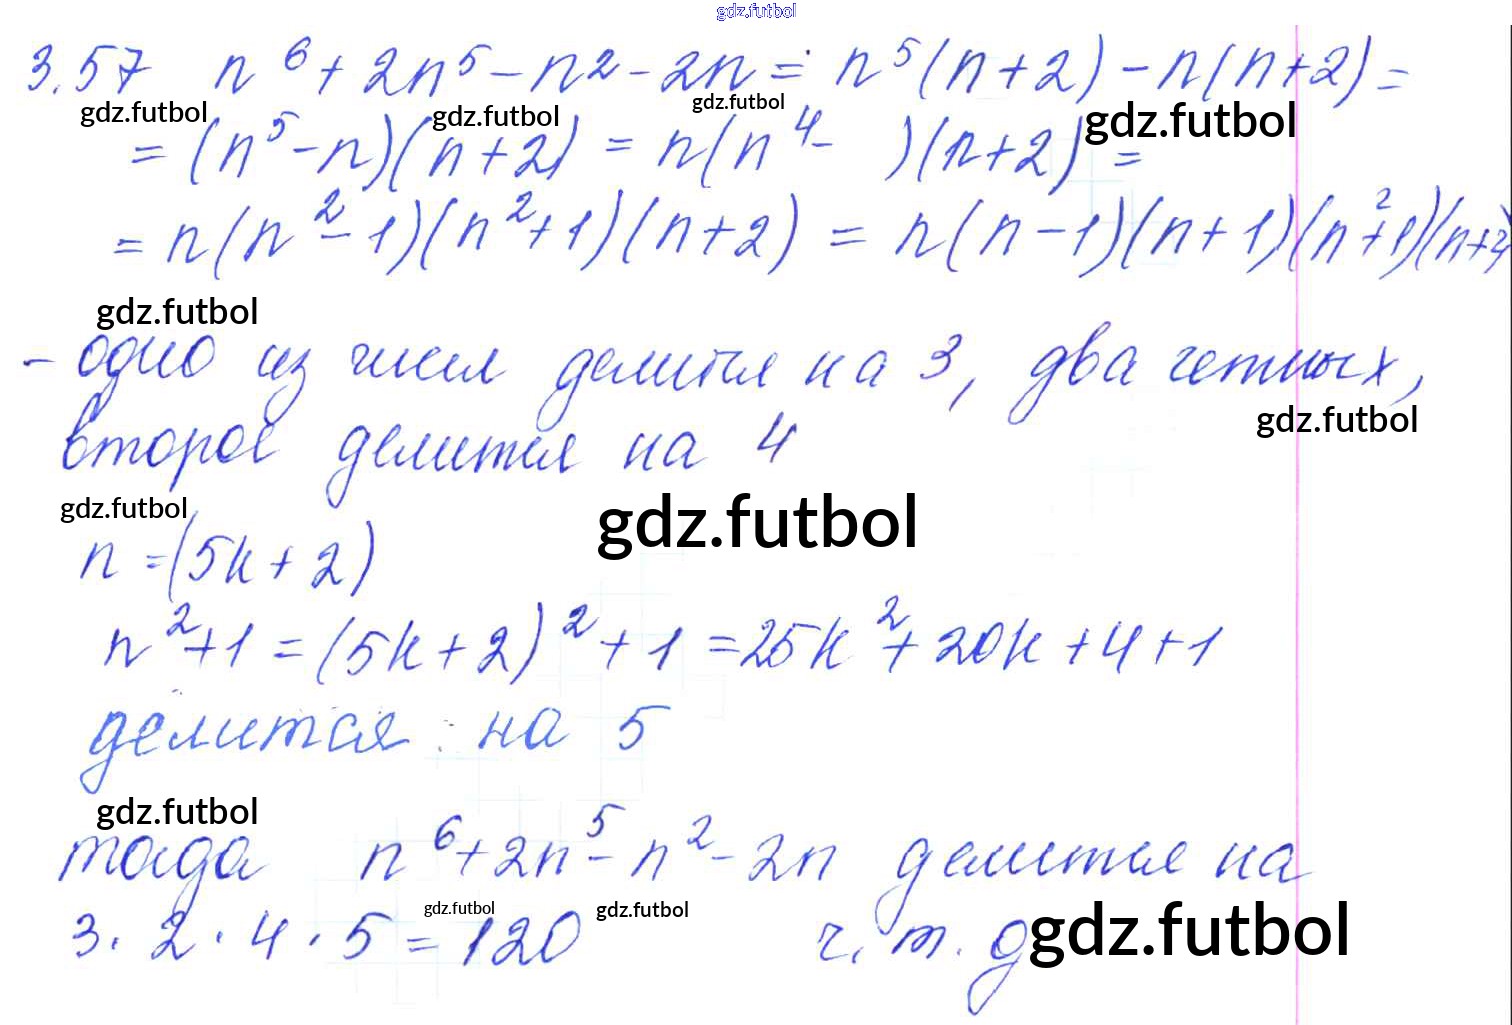 gdz.futbol
3.57 n⁶ + 2n⁵ - n² - 2n = n⁵(n+2) - n(n+2) =
gdz.futbol gdz.futbol gdz.futbol gdz.futbol
= (n⁵ - n)(n+2) = n(n⁴ - )(n+2) =
= n(n² - 1)(n² + 1)(n+2) = n(n-1)(n+1)(n²+1)(n+2)
gdz.futbol
- одно из чисел делится на 3, два четных,
gdz.futbol
второе делится на 4
gdz.futbol gdz.futbol
n = (5k + 2)
n² + 1 = (5k + 2)² + 1 = 25k² + 20k + 4 + 1
делится на 5
gdz.futbol
тогда n⁶ + 2n⁵ - n² - 2n делится на
gdz.futbol gdz.futbol gdz.futbol
3 · 2 · 4 · 5 = 120 ч. т. д